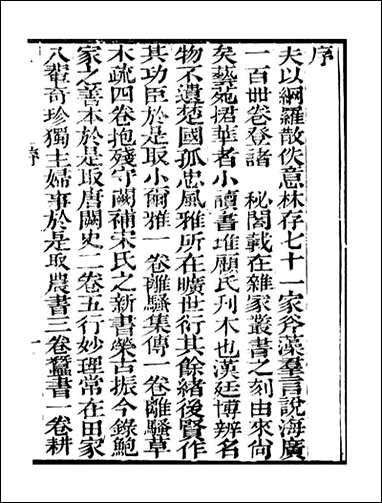 序
夫以網羅散佚意林存七十一家斧藻羣言說海廣
一百卅卷登諸　秘閣載在雜家叢書之刻由來尙
矣藝苑捃華者小讀書堆顧氏刋木也漢廷博辨名
物不遺楚國孤忠風雅所在曠世衍其餘緒後賢作
其功臣於是取小爾雅一卷離騷集傳一卷離騷草
木疏四卷抱殘守闕補宋氏之新書榮古振今錄鮑
家之善本於是取唐闕史二卷五行妙理常在田家
八輩奇珍獨主婦事於是取農書三卷蠶書一卷耕
序
一